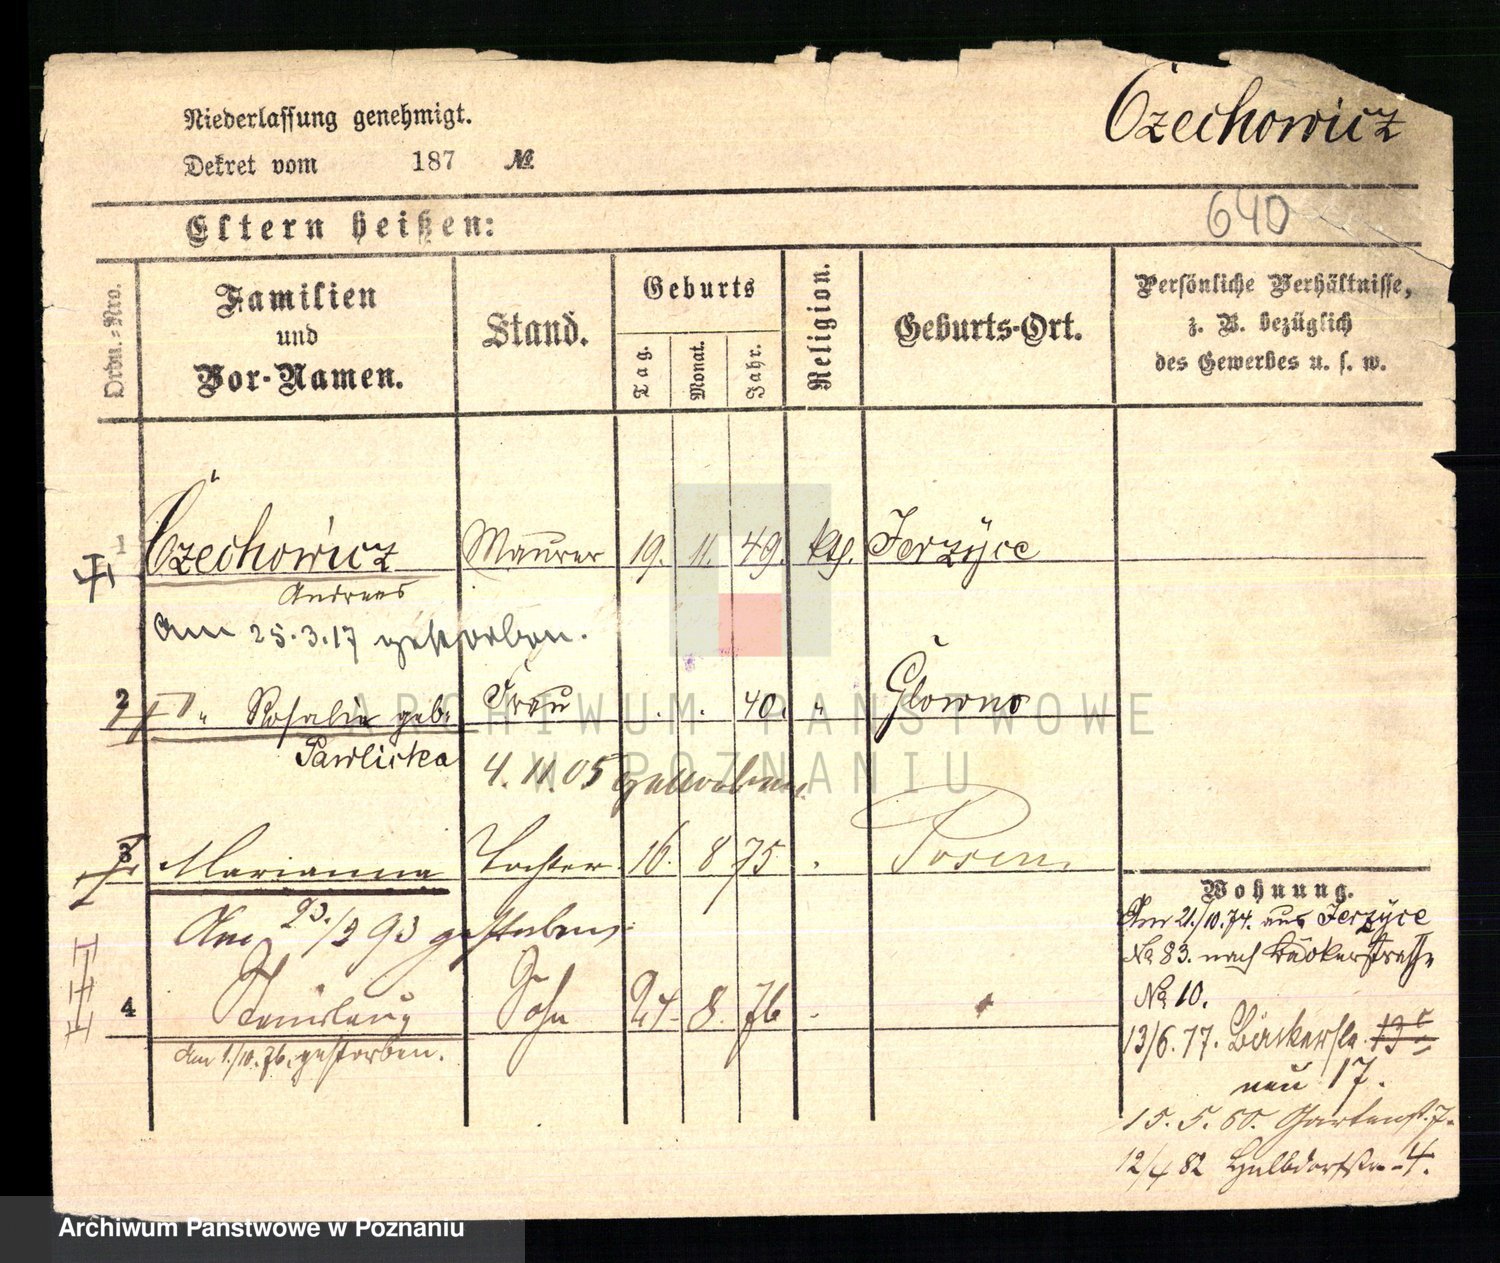 Czechowicz
Niederlassung genehmigt.
Dekret vom 187 №
640
Eltern heißen:
Ordn.-Nro.
Familien
und
Vor-Namen.
Stand.
Geburts
Tag.
Monat.
Jahr.
Religion.
Geburts-Ort.
Persönliche Verhältnisse,
z. B. bezüglich
des Gewerbes u. s. w.
1 Czechowicz Maurer 19. 11. 49. kth. Jerzyce
Andreas
Am 25.3.17 gestorben.
2 " Rosalie geb. Frau 40. " Glowno
Pawlicka
4.11.05 gestorben
3 Marianna Tochter 16. 8 75 Posen
Am 23./2 93 gestorben
4 Stanislaus Sohn 24. 8. 76
Am 1./10. 76. gestorben.
Wohnung.
Am 21./10.74. aus Jerzyce
No 83. nach Bäckerstraße
No 10.
13/6.77. Bäckerstr.
neu 17.
15.5.80. Gartenstr. 7.
12/4 82 Halbdorfstr. 4.
ARCHIWUM PAŃSTWOWE
W POZNANIU
Archiwum Państwowe w Poznaniu